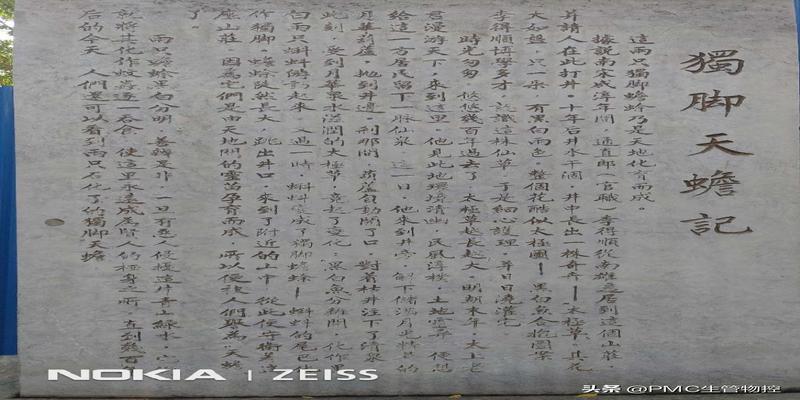 獨脚天蟾記
這兩只獨脚蟾蜍乃是天地化育而成。
據説南宋咸淳年間,通直郎(官職)李得順從南雄
居到這個山莊,
并請人在此打井。十年后井水干涸,井中長出一株奇卉——太極草,其花
大如盤,只一朵,有黑白兩色,整個花酷似太極圖——黑白魚合抱圖案
李得順博學多才,認識這株仙草,于是細心護理,并日日澆灌它
時光匆匆,悠悠幾百年過去了,太極草越長越大。明朝末年,太上老
君漫游天下,來到這里。他見此地環境清幽,民風淳樸,土地靈
便想
給這一方居民留下一脉仙泉。這一日,他來到井旁,解下儲滿月
精華的
月華葫蘆,抛到井邊,刹那間,葫蘆自動開了口,對着枯井注下了清泉
此刻,受到月華泉水滋潤的太極草,竟起了變化:黑白魚分離開,化作黑
白兩只蝌蚪
游起來。又過一時,蝌蚪變成了獨脚蟾蜍——蝌蚪的尾巴化
作獨脚。蟾蜍
長大,跳出井口,來到了附近的山中,從此便守衛着這
座山莊。因爲它們是由天地間的靈
孕育而成,所以便被人們呼爲"天蟾"
了。
兩只蟾蜍黑白分明,善辨是非,一旦有惡人侵擾這片青山綠水,它
就將其化作蚊
吞食,使這里永遠成爲賢人的栖身之所。直到幾百年
后的今天,人們還可以看到兩只石化了的獨脚天蟾
NOKIA | ZEISS
头条 @PMC生管物控